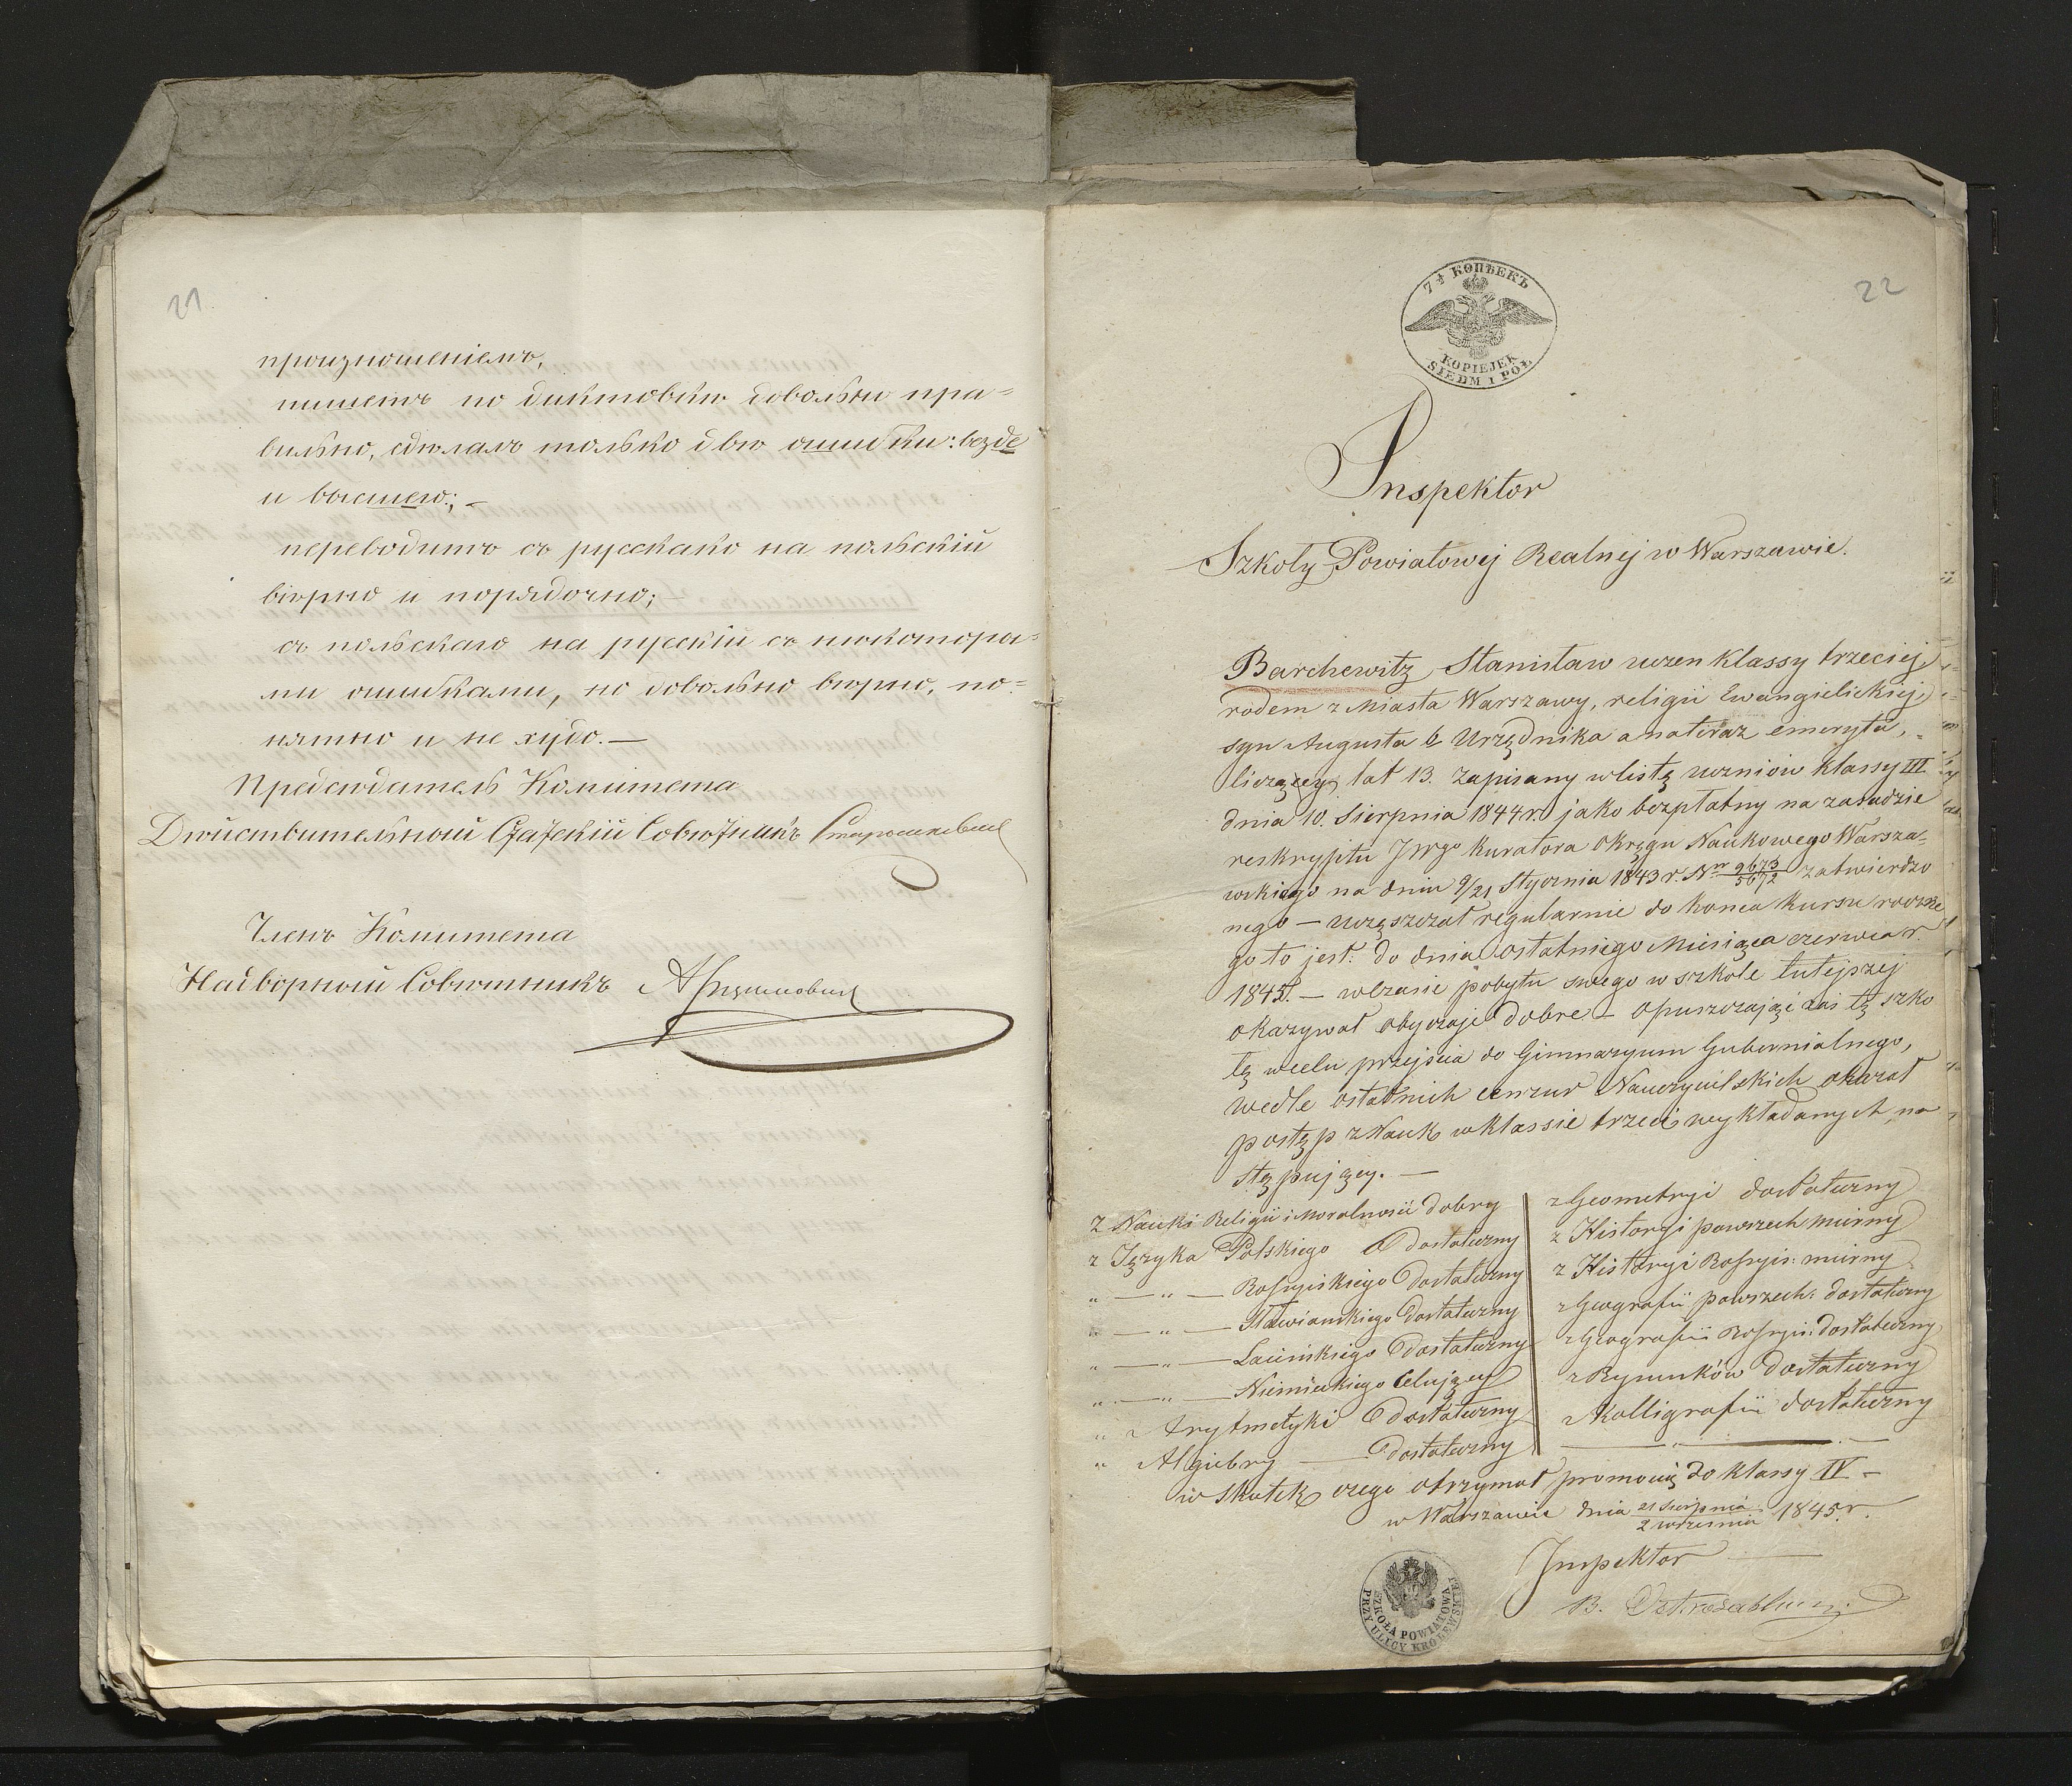 21
произношеніемъ,
пишетъ по диктовкѣ довольно пра=
вильно, сдѣлалъ только двѣ ошибки: везде
и высшею; –
переводитъ съ русскаго на польскій
вѣрно и порядочно; –
съ польскаго на русскій съ нѣкоторы=
ми ошибками, но довольно вѣрно, по=
нятно и не худо. —
Предсѣдатель Комитета
Дѣйствительный Статскій Совѣтникъ
Членъ Комитета
Надворный Совѣтникъ
22
7½ КОПѢЕКЪ
KOPIEJEK
SIEDM I PÓŁ
Inspektor
Szkoły Powiatowej Realnej w Warszawie.
Barchewitz Stanisław uczen klassy trzeciej
rodem z Miasta Warszawy, religii Ewangielickiej,
syn Augusta b. Urzędnika a nateraz emeryta,
liczący lat 13. zapisany w listę uczniów klassy III
dnia 10. Sierpnia 1844 r. jako bezpłatny na zasadzie
reskryptu JWgo Kuratora Okręgu Naukowego Warsza=
wskiego na dniu 9/21 Stycznia 1843 r. Nr 9673/5672 zatwierdzo
nego — uczęszczał regularnie do końca kursu roczne
go to jest: do dnia ostatniego Miesiąca czerwca r.
1845. — w czasie pobytu swego w szkole tutejszej
okazywał obyczaje dobre — opuszczając zaś tę szko
łę w celu przejścia do Gimnazyum Gubernialnego,
wedle ostatnich cenzur Nauczycielskich okazał
postęp z Nauk w klassie trzeciej wykładanych na
stępujący. —
Z Nauki Religii i Moralności dobry
z Języka Polskiego dostateczny
„ — „ — Rossyjskiego dostateczny
„ — „ — Sławiańskiego dostateczny
„ — „ — Łacińskiego dostateczny
„ — „ — Niemieckiego Celujący
„ z Arytmetyki dostateczny
„ Algiebry — dostateczny
z Geometryi dostateczny
z Historyi powszech mierny
z Historyi Rossyis: mierny
z Geografii powszech: dostateczny
z Geografii Rossyis: dostateczny
z Rysunków dostateczny
z Kalligrafii dostateczny
w skutek czego otrzymał promocię do klassy IV –
w Warszawie dnia 21 Sierpnia/2 września 1845 r.
Inspektor
B.
SZKOŁA POWIATOWA
PRZY ULICY KRÓLEWSKIEJ